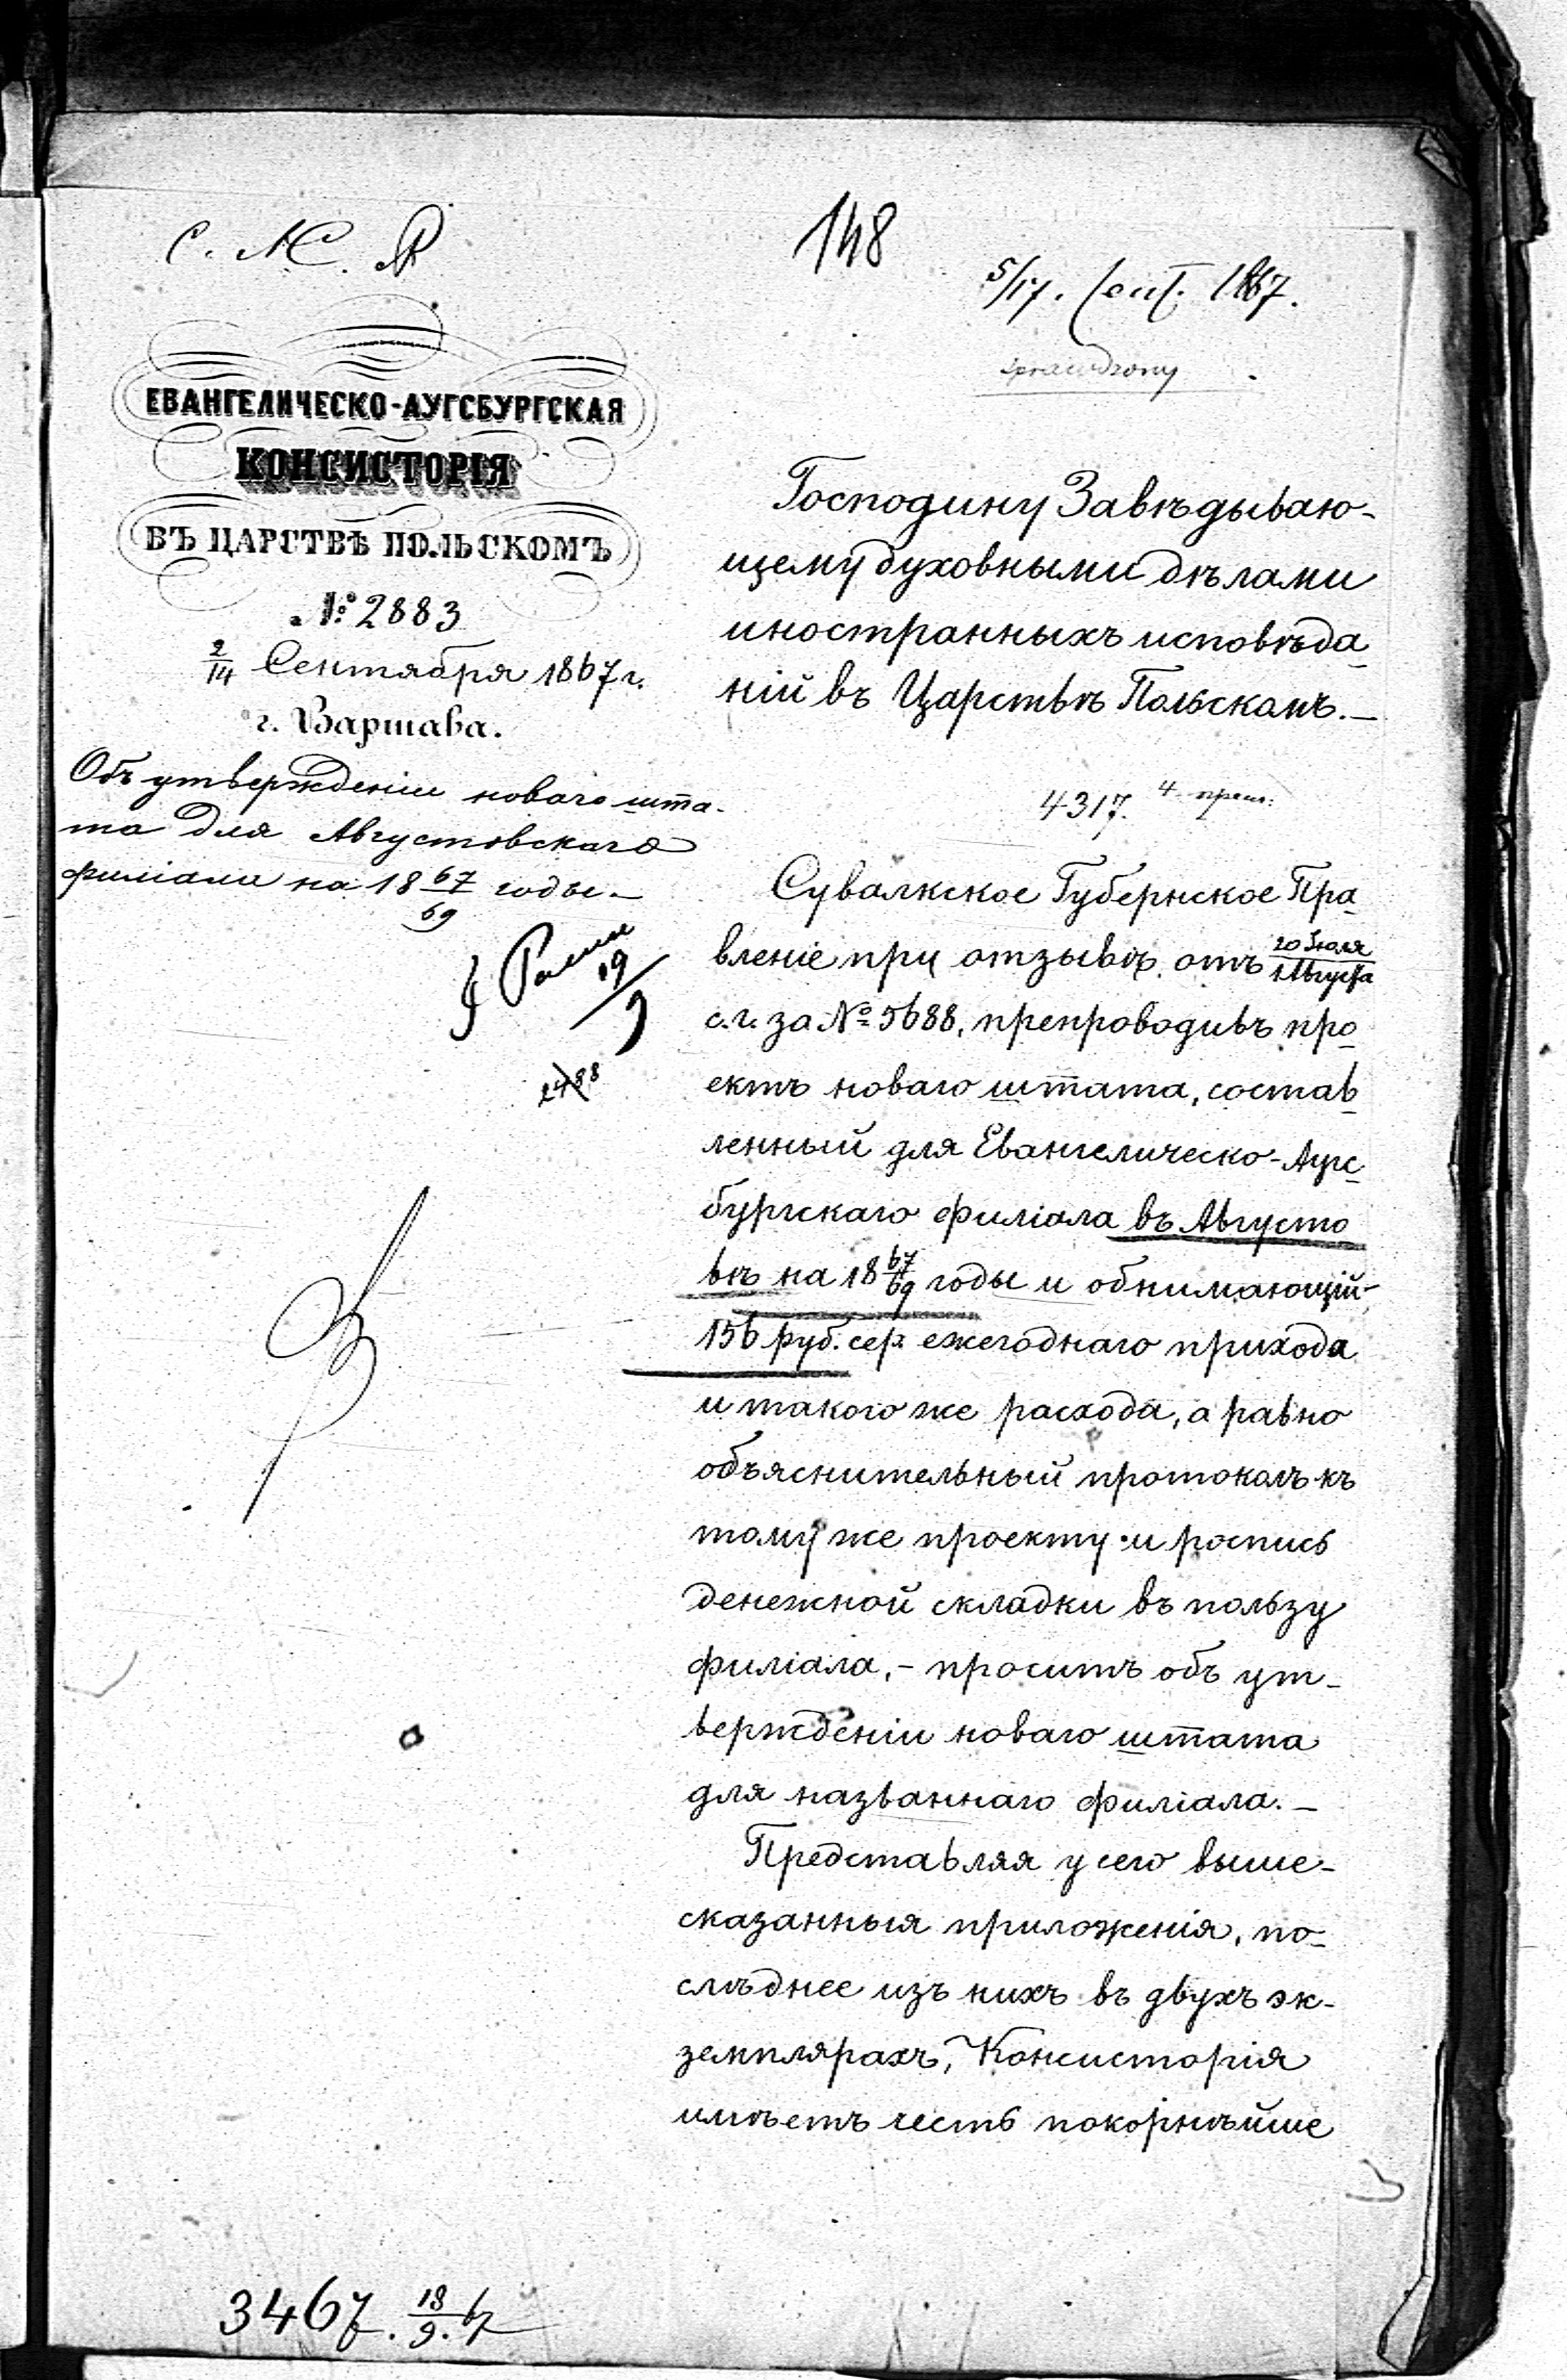 148
5/17. Сент. 1867.
sprawdzony
ЕВАНГЕЛИЧЕСКО-АУГСБУРГСКАЯ
КОНСИСТОРІЯ
ВЪ ЦАРСТВѢ ПОЛЬСКОМЪ
№ 2883
2/14 Сентября 1867 г.
г. Варшава.
Объ утвержденіи новаго шта-
та для Августовскаго
филіала на 18 67/69 годы.–
19/9
2488
Господину Завѣдываю-
щему духовными дѣлами
иностранныхъ исповѣда-
ній въ Царствѣ Польскомъ.–
4317. 4 прил:
Сувалкское Губернское Пра-
вленіе при отзывѣ отъ 20 Іюля/1 Августа
с.г. за № 5688, препроводивъ про-
ектъ новаго штата, состав-
ленный для Евангелическо-Аугс-
бургскаго филіала въ Августо
вѣ на 18 67/69 годы и обнимающій
156 руб. сер. ежегоднаго прихода
и такого же расхода, а равно
объяснительный протоколъ къ
тому же проекту и роспись
денежной складки въ пользу
филіала,– проситъ объ ут-
вержденіи новаго штата
для названнаго филіала.–
Представляя у сего выше-
сказанныя приложенія, по-
слѣднее изъ нихъ въ двухъ эк-
земплярахъ, Консисторія
имѣетъ честь покорнѣйше
3467. 18/9. 67